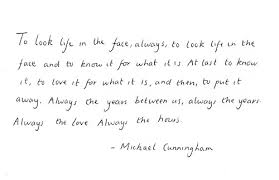 To look life in the face, always, to look life in the
face and to know it for what it is At last to know
it, to love it for what it is, and then, to put it
away. Always the years between us, always the years.
Always the love Always the hours.
- Michael Cunningham